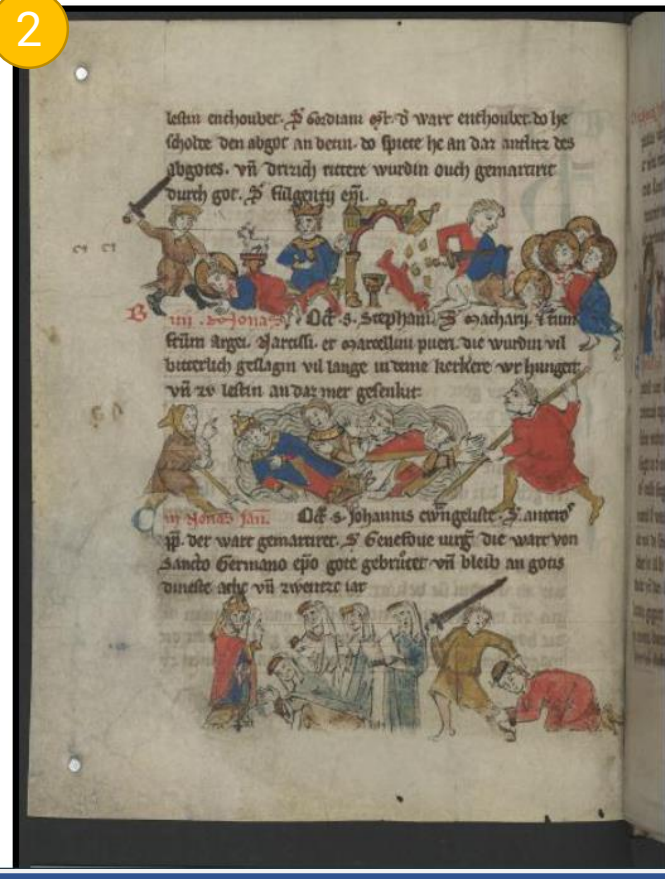 2
lestin enthoubet. S Gordiani mr. d wart enthoubet do he
scholte den abgot an betin. do spiete he an daz antlitz des
abgotes. vn drizich rittere wurdin ouch gemartirit
durch got. S fulgentij epi.
B iiij . Nonas. Oct. s. Stephani. S Macharij.
frum Argei. Narcissi. et Marcellini pueri. die wurdin vil
bitterlich geslagin vil lange in deme kerkere vor hungert
vn zv lestin an daz mer gesenkit
C iij Nonas Jan. Oct. s. Johannis ewngeliste. S. antero
pp. der wart gemartiret. S Genefoue uirg. die wart von
Sancto Germano epo gote gebruter vn bleib an gotis
dineste achte vn zwenzc iar